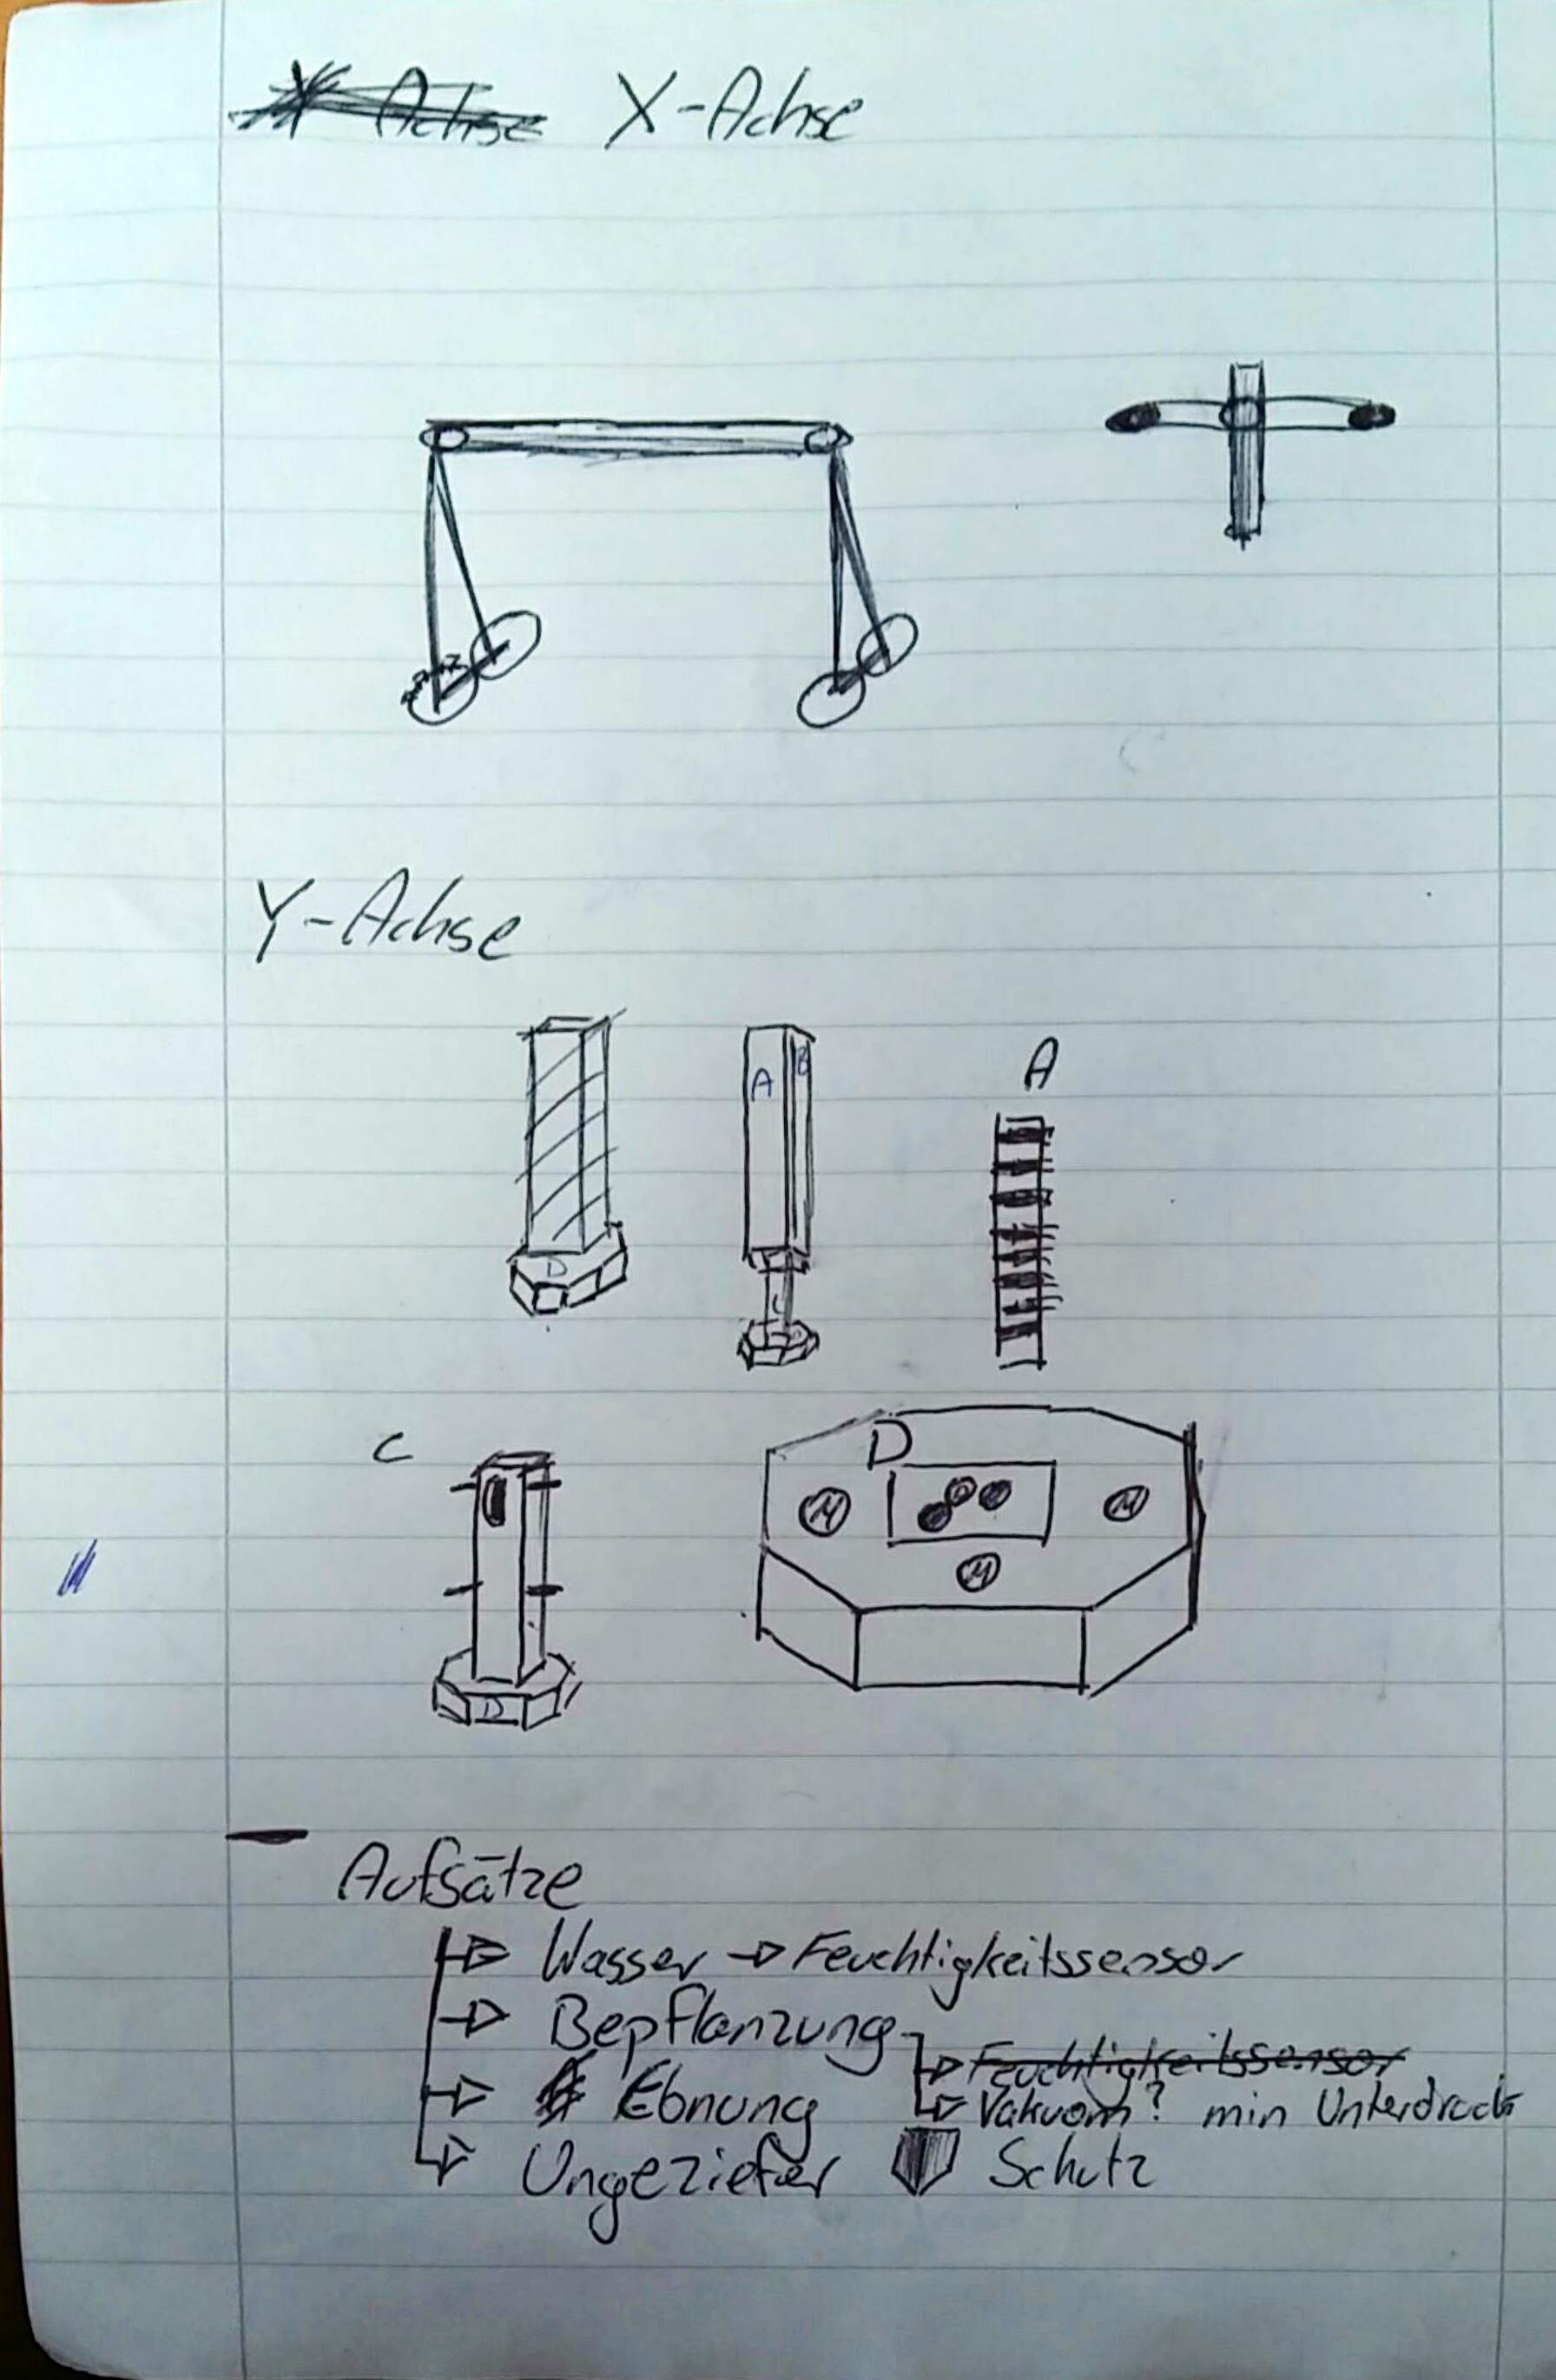 X-Achse
Y-Achse
A B A
D
C D
M M
M
D
Aufsätze
Wasser → Feuchtigkeitssensor
Bepflanzung
Feuchtigkeitssensor
Ebnung Vakuum? min Unterdruck
Ungeziefer Schutz